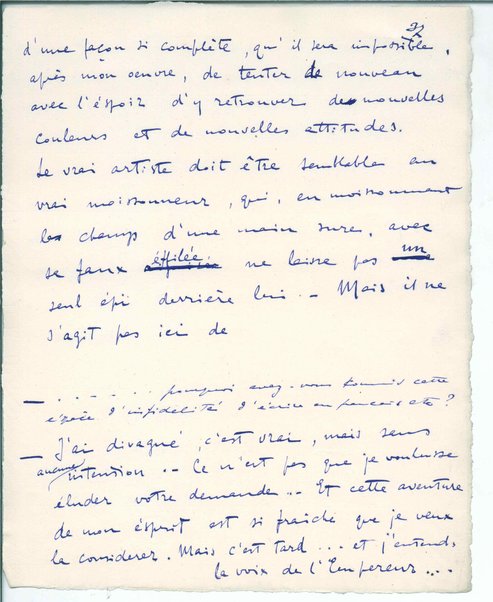 d'une façon si complète, qu'il sera impossible,
après mon oeuvre, de tenter de nouveau
avec l'éspoir d'y retrouver de nouvelles
couleurs et de nouvelles attitudes.
Le vrai artiste doit être semblable au
vrai moissonneur, qui, en moissonnant
le champ d'une main sure, avec
se faux éffilée ne laisse pas un
seul épi derrière lui. — Mais il ne
s'agit pas ici de
— . . . . . . pourquoi avez-vous commis cette
éspèce d'infidelité d'écrire en français etc ?
— J'ai divagué, c'est vrai, mais sans
aucune intention ... Ce n'est pas que je voulusse
éluder votre demande ... Et cette aventure
de mon ésprit est si fraiche que je veux
la considerer. Mais c'est tard ... et j'entends
la voix de l'Empereur ...